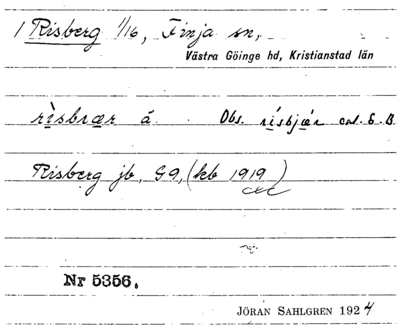 1 Risberg 1/16, Finja sn,
Västra Göinge hd, Kristianstad län
rìsbrær å Obs. rísbjær
Risberg jb, G9, (kb 1919)
Nr 5356.
JÖRAN SAHLGREN 1924